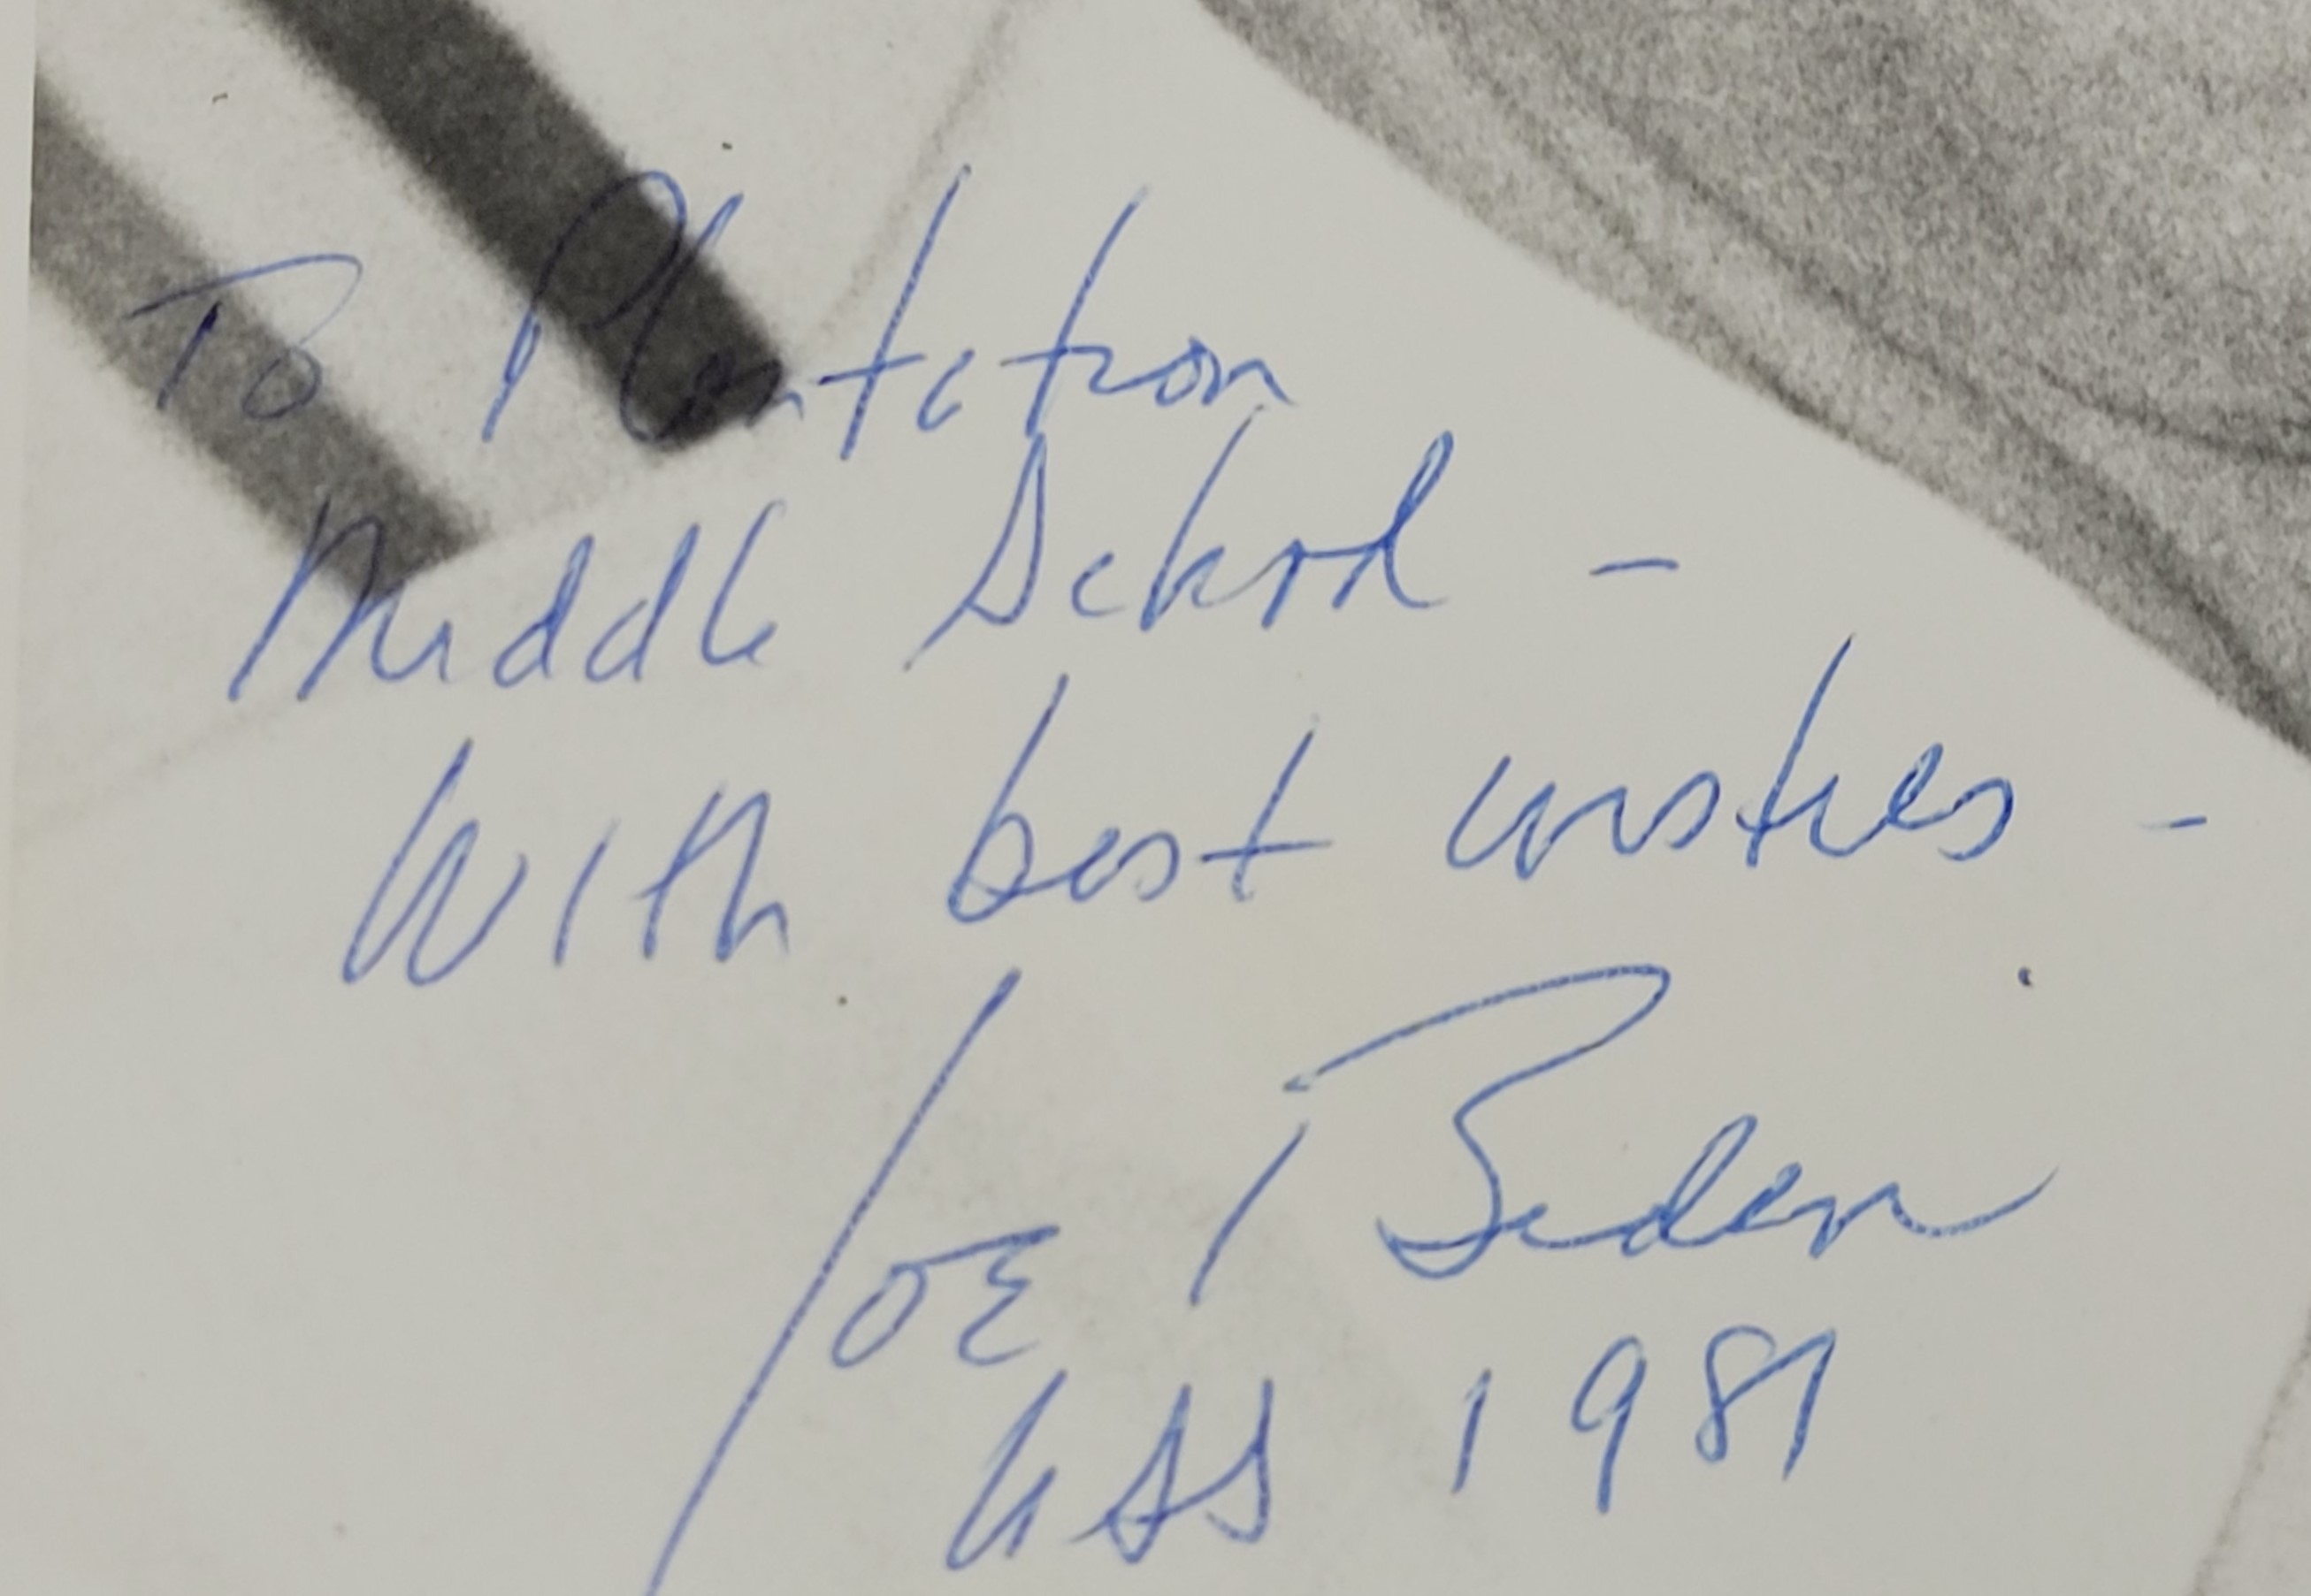 To Plantation
Middle School -
With best wishes -
Joe Biden
USS 1981